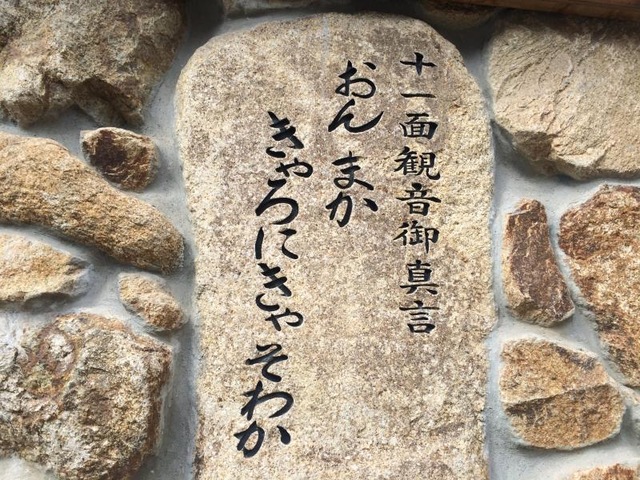 十一面観音御真言
おん まか
きゃろにきゃ そわか